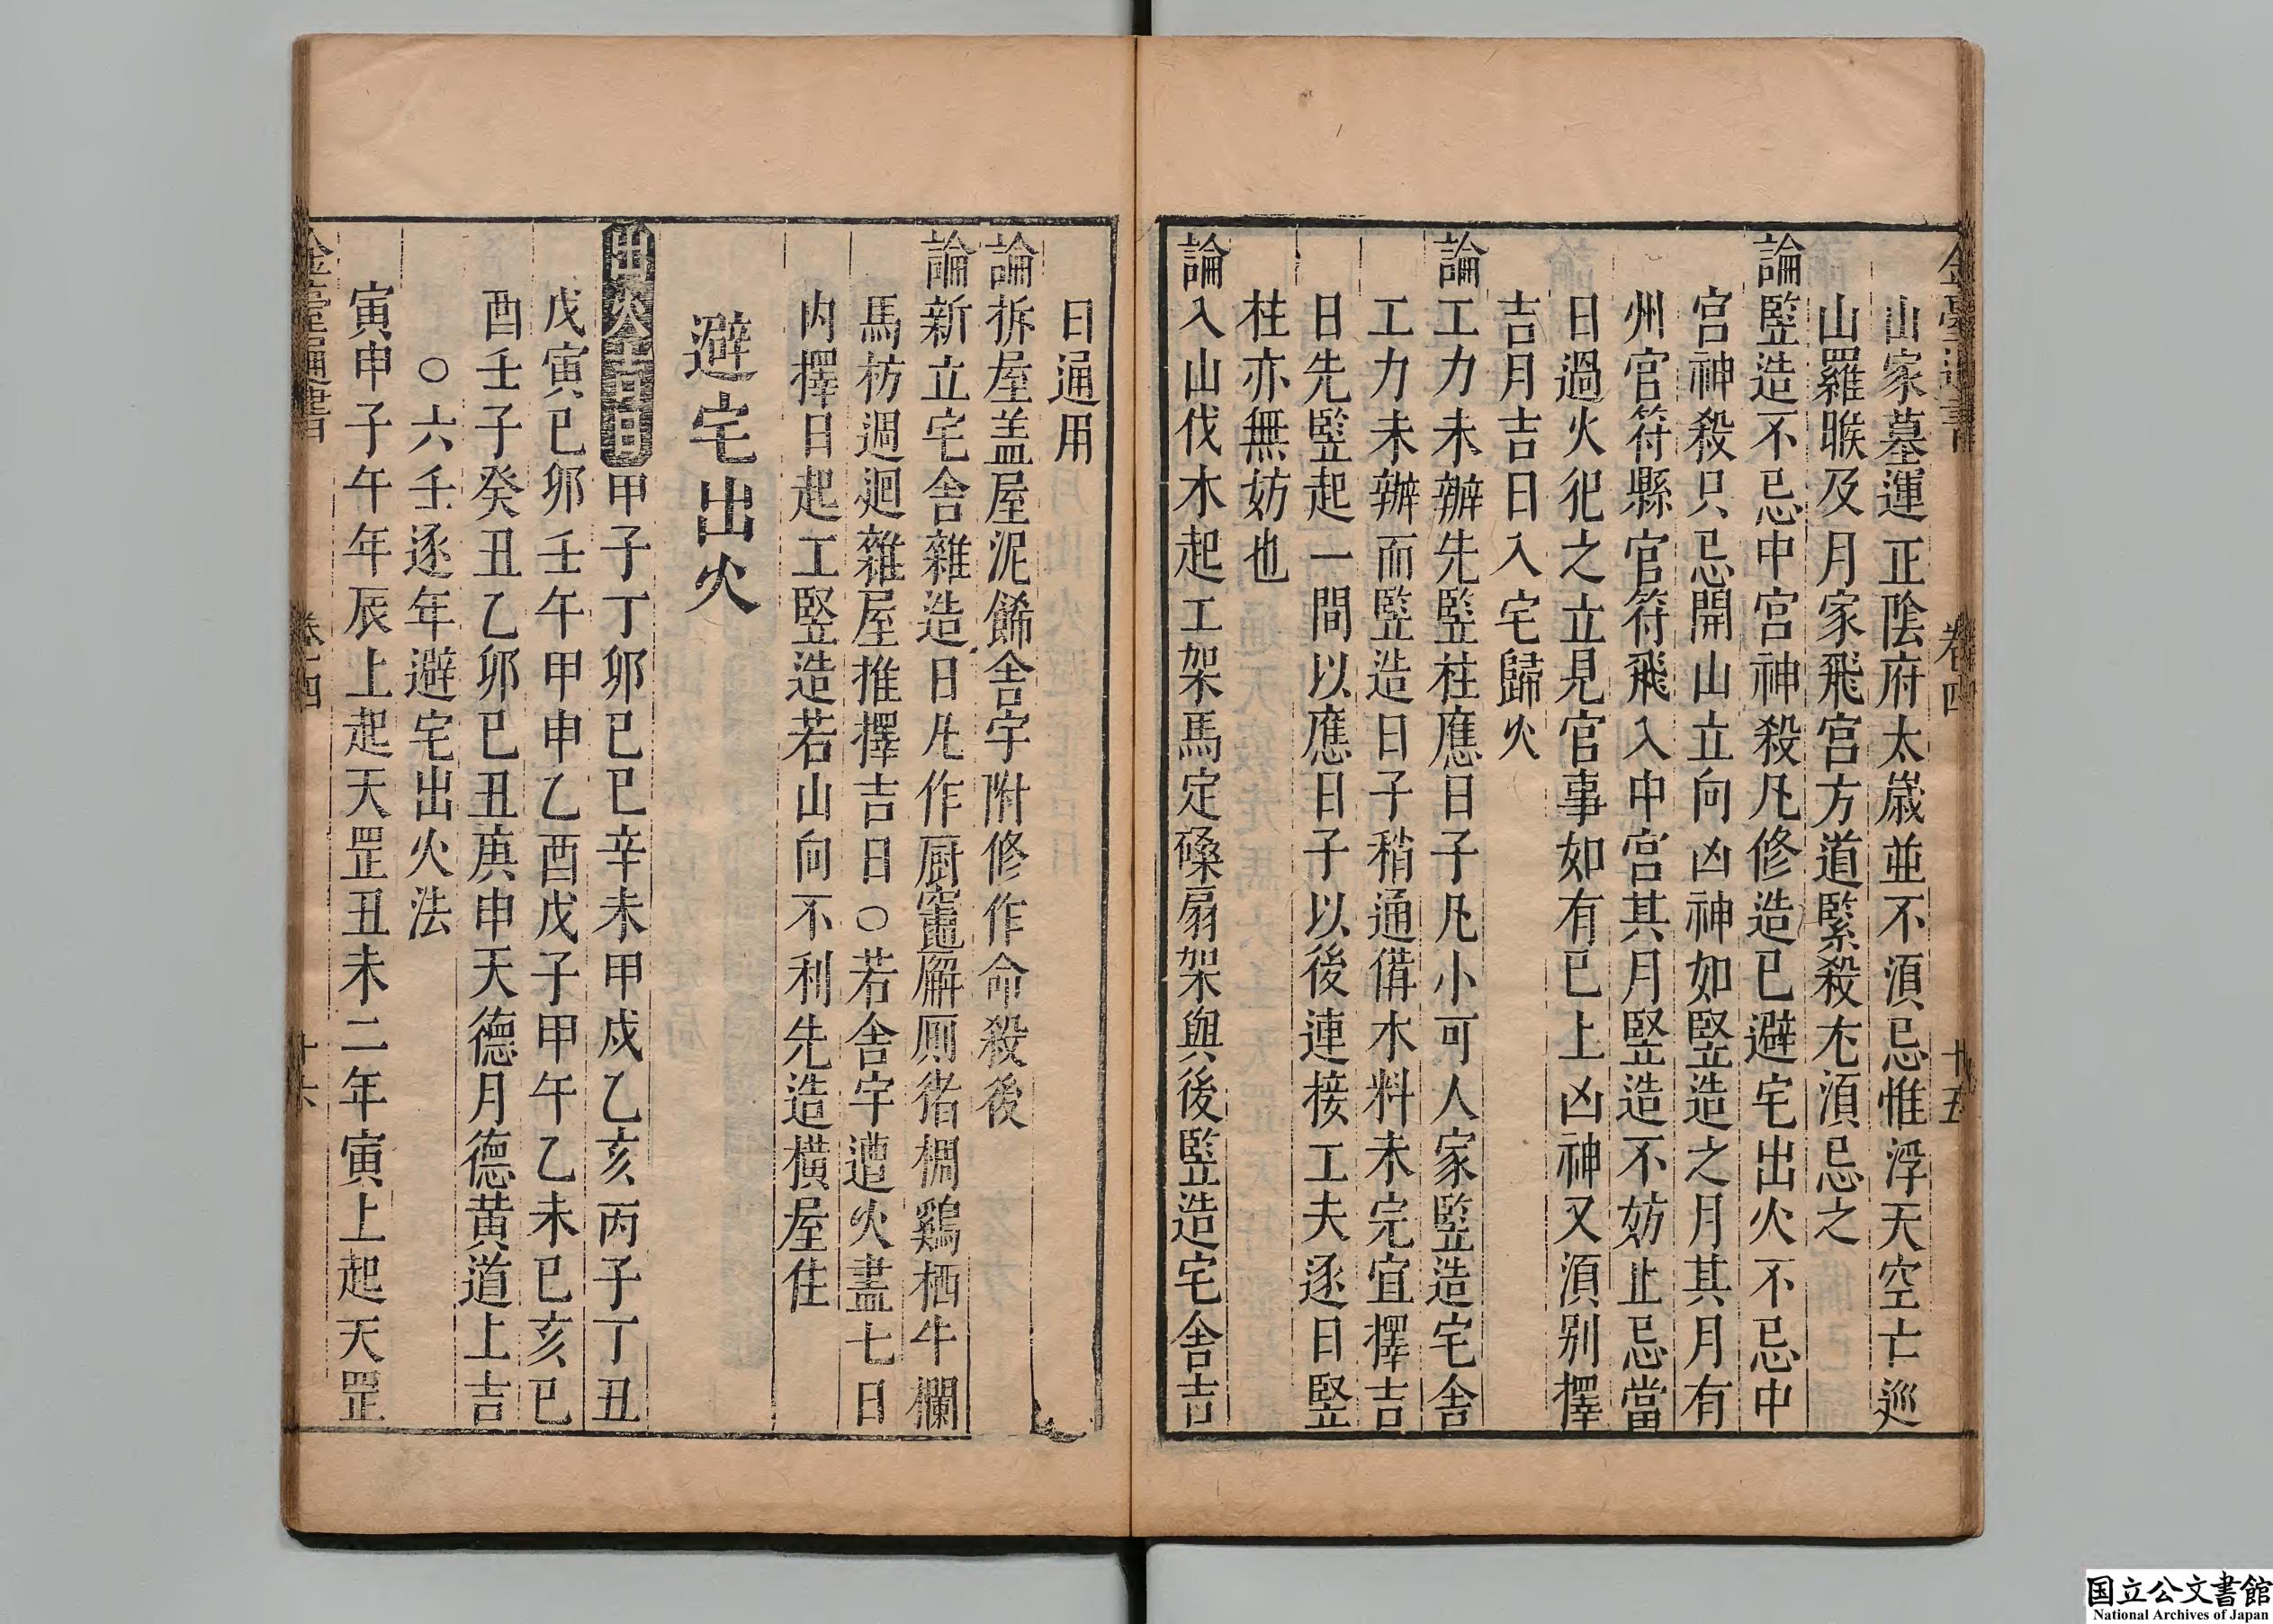 山家墓運正陰府太歲並不湏忌惟浮天空亡巡
山羅睺及月家飛宫方道緊殺尢湏忌之
論竪造不忌中宫神殺凡修造已避宅出火不忌中
宫神殺只忌開山立向凶神如竪造之月其月有
州官符縣官符飛入中宫其月竪造不妨止忌當
日過火犯之立見官事如有已上凶神又湏别擇
吉月吉日入宅歸火
論工力未辦先竪柱應日子凡小可人家竪造宅舍
工力未辦而竪造日子稍通偹木料未完宜擇吉
日先竪起一間以應日子以後連接工夫逐日竪
柱亦無妨也
論入山伐木起工架馬定磉扇架與後竪造宅舍吉
日通用
論拆屋盖屋泥餙舍宇附修作命殺後
論新立宅舍雜造日凡作厨竈廨厠猪椆鷄栖牛欄
馬枋週迴雜屋推擇吉日○若舍宇遭火盡七日
内擇日起工竪造若山向不利先造橫屋住
避宅出火
出火吉日甲子丁卯已巳辛未甲戌乙亥丙子丁丑
戊寅已卯壬午甲申乙酉戊子甲午乙未已亥已
酉壬子癸丑乙卯已丑庚申天德月德黄道上吉
○六壬逐年避宅出火法
寅申子午年辰上起天罡丑未二年寅上起天罡
金臺通書
卷四
十五
国立公文書館
National Archives of Japan